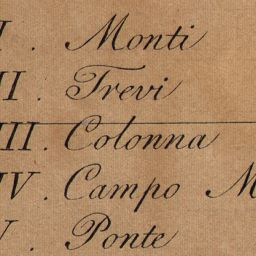 I. Monti
II. Trevi
III. Colonna
IV. Campo M
V. Ponte